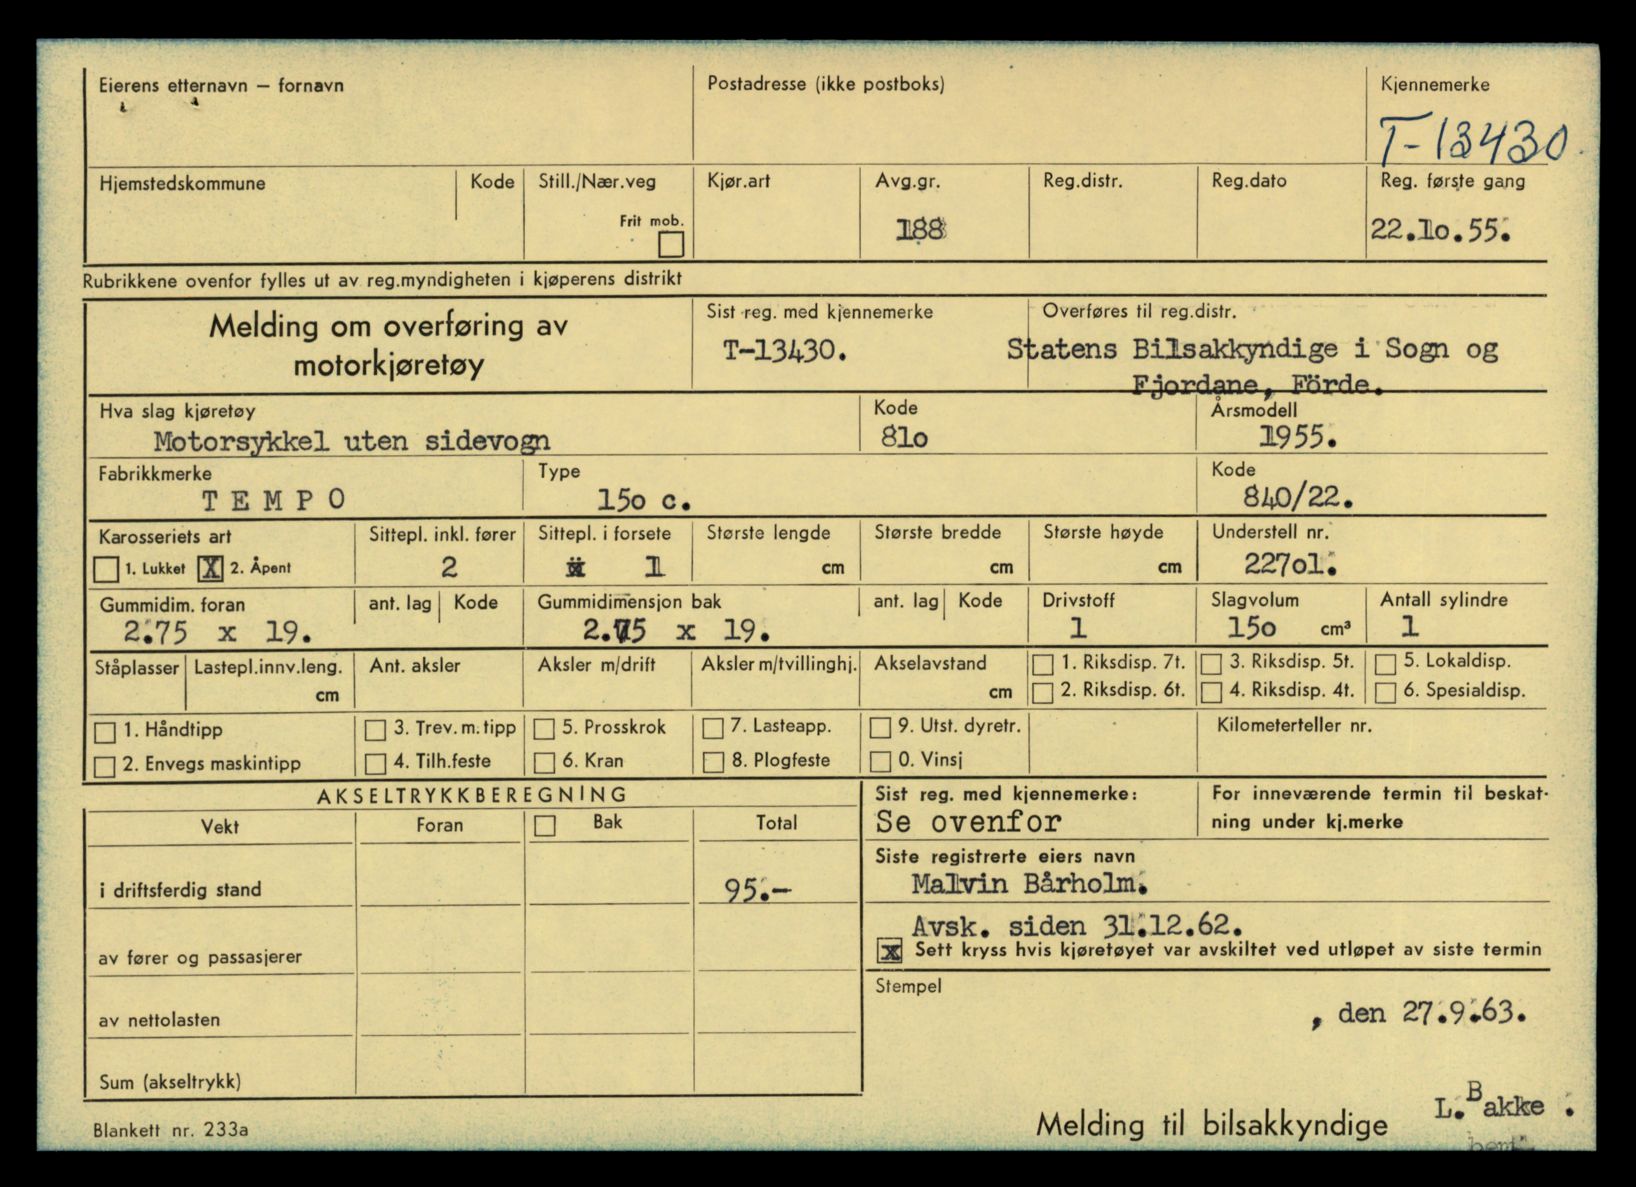 Eierens etternavn — fornavn
Postadresse (ikke postboks)
Kjennemerke
T-13430
Hjemstedskommune
Kode
Still./Nær.veg
Frit mob.
Kjør.art
Avg.gr.
188
Reg.distr.
Reg.dato
Reg. første gang
22.10.55.
Rubrikkene ovenfor fylles ut av reg.myndigheten i kjøperens distrikt
Melding om overføring av
motorkjøretøy
Sist reg. med kjennemerke
T-13430.
Overføres til reg.distr.
Statens Bilsakkyndige i Sogn og
Fjordane, Förde.
Hva slag kjøretøy
Motorsykkel uten sidevogn
Kode
81o
Årsmodell
1955.
Fabrikkmerke
T E M P O
Type
15o c.
Kode
840/22.
Karosseriets art
1. Lukket X 2. Åpent
Sittepl. inkl. fører
2
Sittepl. i forsete
1
Største lengde
cm
Største bredde
cm
Største høyde
cm
Understell nr.
227o1.
Gummidim. foran
2.75 x 19.
ant. lag
Kode
Gummidimensjon bak
2.75 x 19.
ant. lag
Kode
Drivstoff
1
Slagvolum
15o cm³
Antall sylindre
1
Ståplasser
Lastepl.innv.leng.
cm
Ant. aksler
Aksler m/drift
Aksler m/tvillinghj.
Akselavstand
cm
1. Riksdisp. 7t.
2. Riksdisp. 6t.
3. Riksdisp. 5t.
4. Riksdisp. 4t.
5. Lokaldisp.
6. Spesialdisp.
1. Håndtipp
2. Envegs maskintipp
3. Trev.m.tipp
4. Tilh.feste
5. Prosskrok
6. Kran
7. Lasteapp.
8. Plogfeste
9. Utst. dyretr.
0. Vinsj
Kilometerteller nr.
AKSELTRYKKBEREGNING
Vekt
Foran
Bak
Total
i driftsferdig stand
95.-
av fører og passasjerer
av nettolasten
Sum (akseltrykk)
Sist reg. med kjennemerke:
Se ovenfor
For inneværende termin til beskat-
ning under kj.merke
Siste registrerte eiers navn
Malvin Bårholm.
Avsk. siden 31.12.62.
X Sett kryss hvis kjøretøyet var avskiltet ved utløpet av siste termin
Stempel
, den 27.9.63.
L.Bakke .
Blankett nr. 233a
Melding til bilsakkyndige